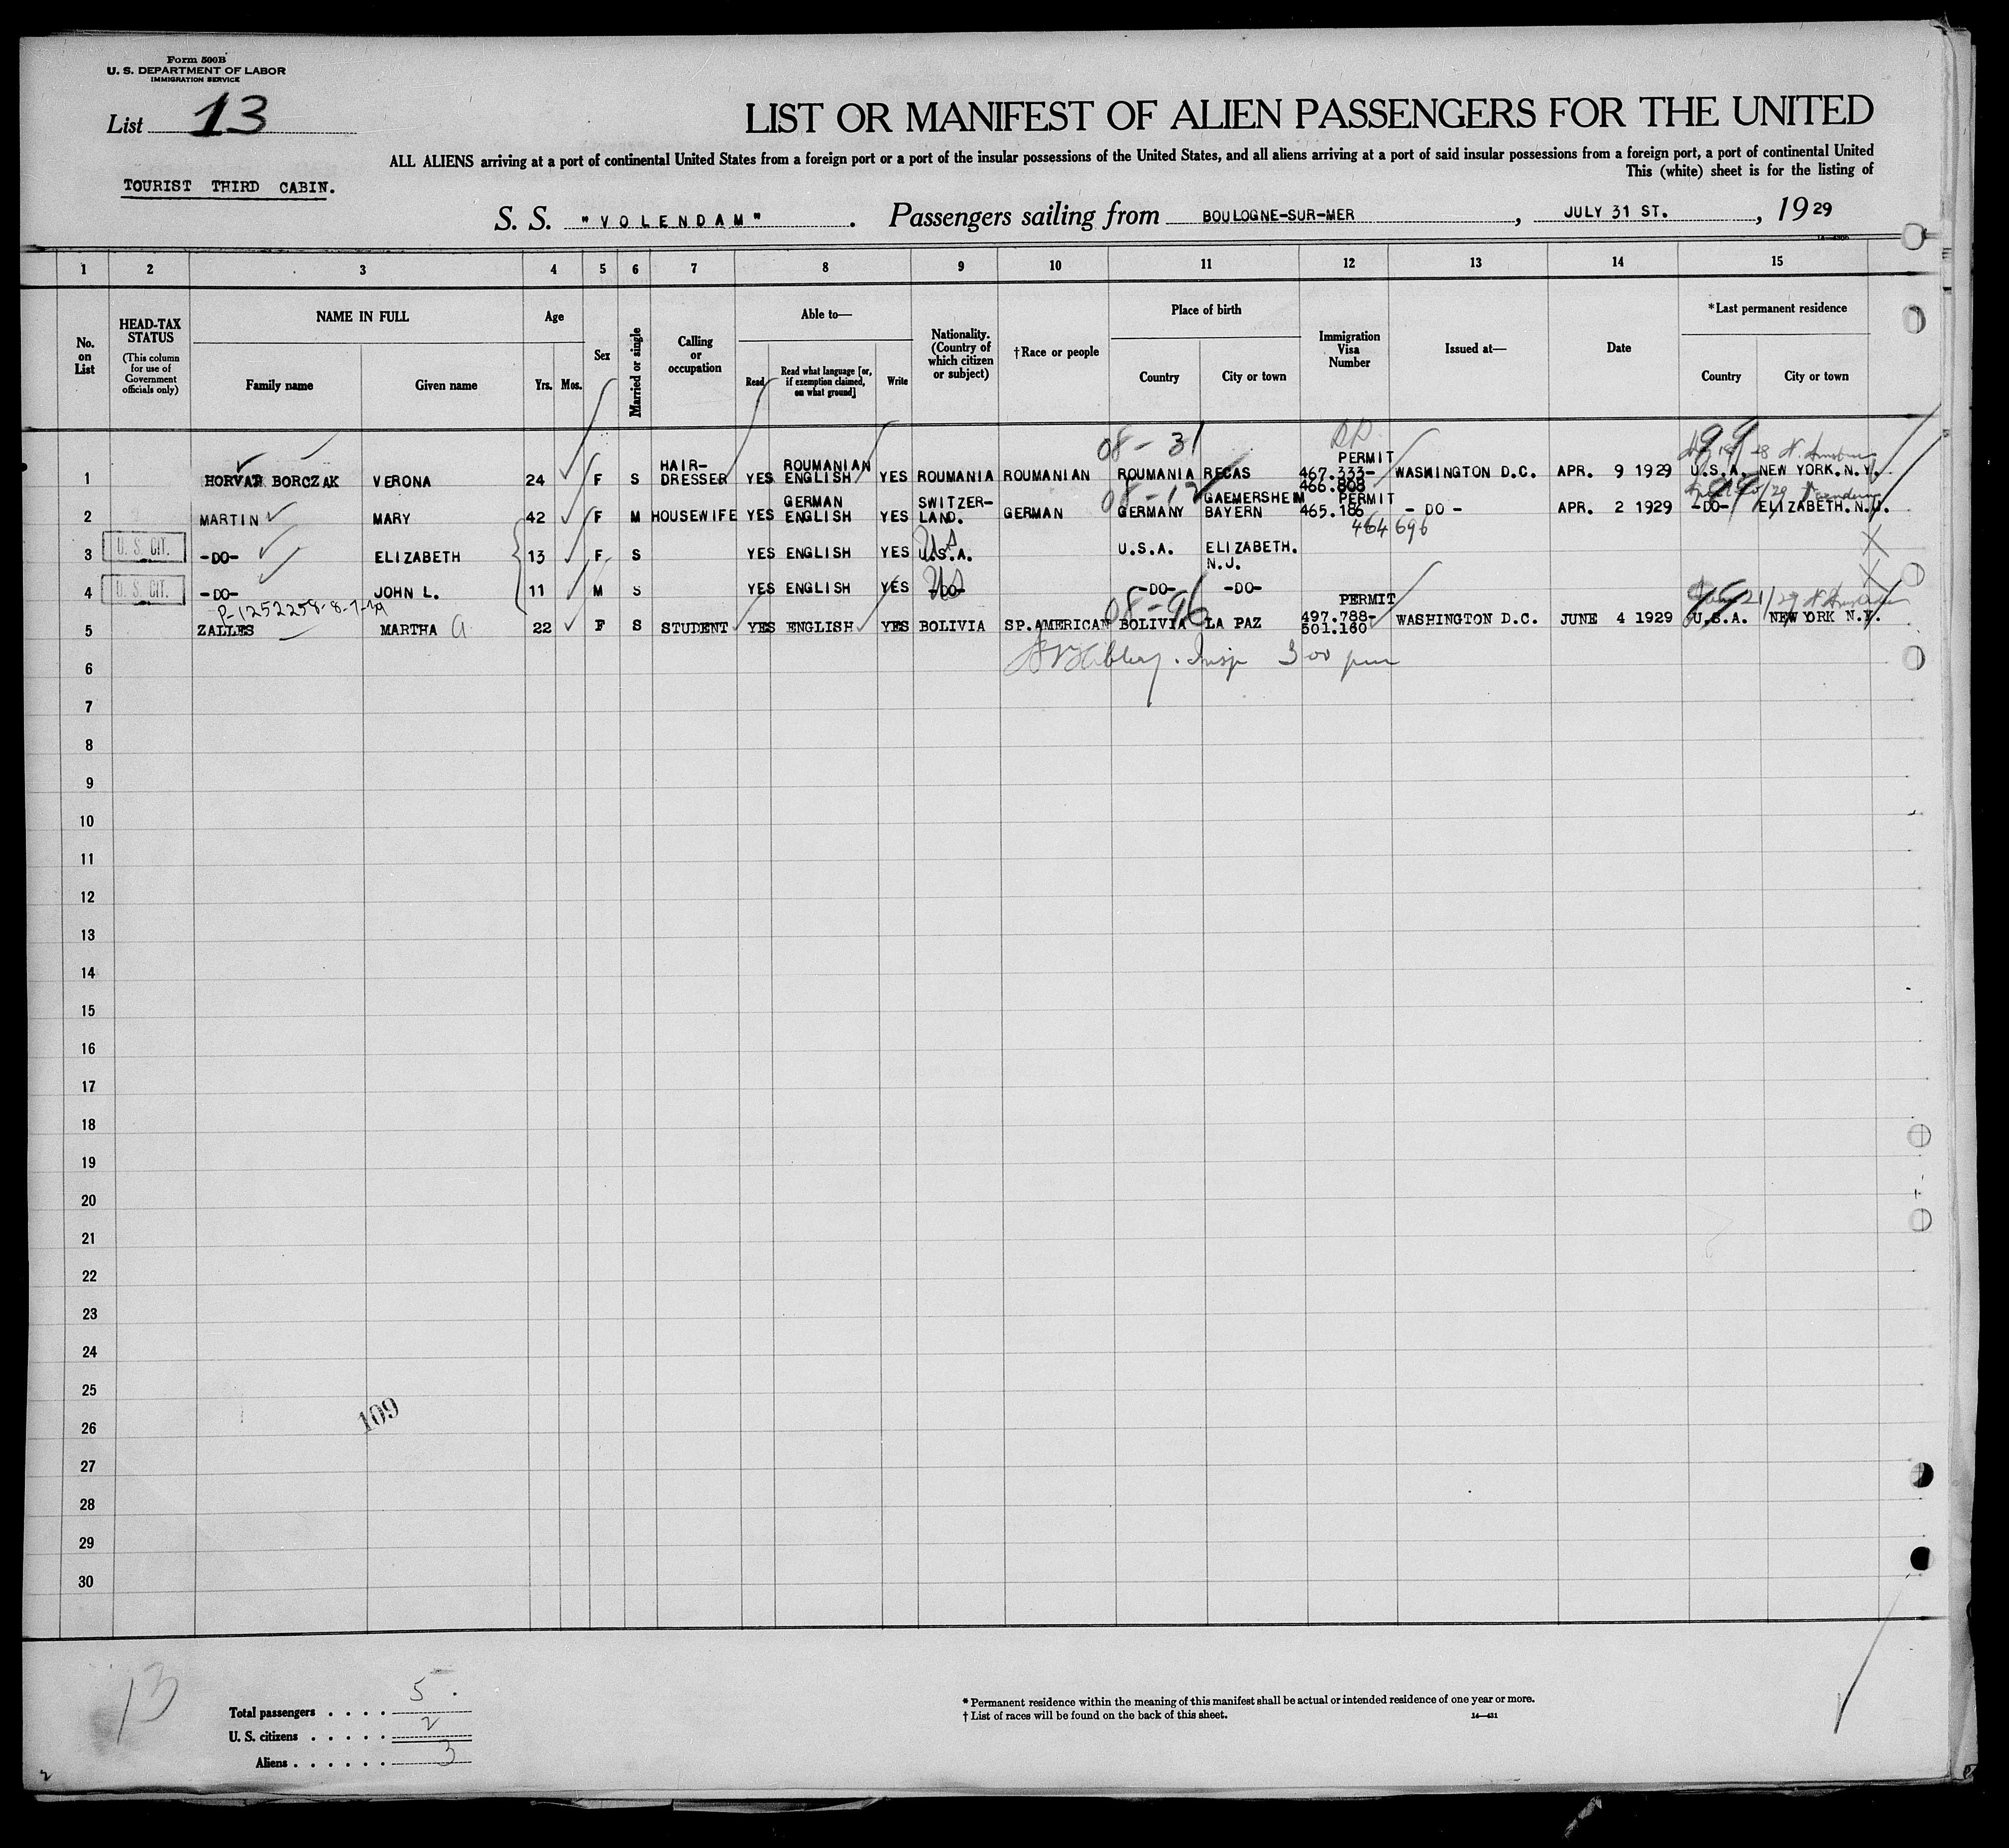 Form 500B
U. S. DEPARTMENT OF LABOR
IMMIGRATION SERVICE
List 13
LIST OR MANIFEST OF ALIEN PASSENGERS FOR THE UNITED
ALL ALIENS arriving at a port of continental United States from a foreign port or a port of the insular possessions of the United States, and all aliens arriving at a port of said insular possessions from a foreign port, a port of continental United
This (white) sheet is for the listing of
TOURIST THIRD CABIN.
S. S. "VOLENDAM". Passengers sailing from BOULOGNE-SUR-MER, JULY 31 ST., 1929
1 2 3 4 5 6 7 8 9 10 11 12 13 14 15
No. on List
HEAD-TAX STATUS (This column for use of Government officials only)
NAME IN FULL
Family name Given name
Age
Yrs. Mos.
Sex
Married or single
Calling or occupation
Able to—
Read Read what language [or, if exemption claimed, on what ground] Write
Nationality. (Country of which citizen or subject)
†Race or people
Place of birth
Country City or town
Immigration Visa Number
Issued at—
Date
*Last permanent residence
Country City or town
08-31
1 HORVAT BORCZAK VERONA 24 F S HAIR-DRESSER YES ROUMANIAN ENGLISH YES ROUMANIA ROUMANIAN ROUMANIA RECAS PERMIT 467.333-466.808 WASHINGTON D.C. APR. 9 1929 U.S.A. NEW YORK.N.Y.
2 MARTIN MARY 42 F M HOUSEWIFE YES GERMAN ENGLISH YES SWITZER-LAND. GERMAN GERMANY GAEMERSHEIM BAYERN PERMIT 465.186 464696 -DO- APR. 2 1929 -DO- ELIZABETH.N.J.
U. S. CIT.
3 -DO- ELIZABETH 13 F S YES ENGLISH YES U.S.A. US U.S.A. ELIZABETH. N.J.
U. S. CIT.
4 -DO- JOHN L. 11 M S YES ENGLISH YES -DO- US -DO- -DO-
P-1252258-8-7-
08-96
5 ZALLES MARTHA a 22 F S STUDENT YES ENGLISH YES BOLIVIA SP.AMERICAN BOLIVIA LA PAZ PERMIT 497.788-501.160 WASHINGTON D.C. JUNE 4 1929 U.S.A. NEW YORK N.Y.
Insp 3 00 pm
6
7
8
9
10
11
12
13
14
15
16
17
18
19
20
21
22
23
24
25
109
26
27
28
29
30
13
Total passengers . . . . 5
U. S. citizens . . . . . 2
Aliens . . . . . . 3
* Permanent residence within the meaning of this manifest shall be actual or intended residence of one year or more.
† List of races will be found on the back of this sheet.
14—431